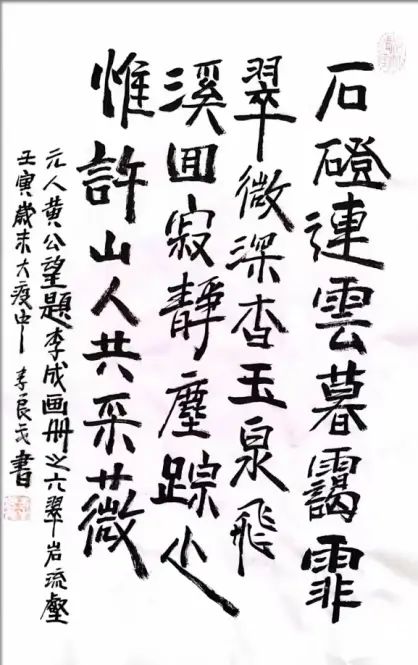 石磴連雲暮靄霏
翠微深杳玉泉飛
溪回寂靜塵踪少
惟許山人共采薇
元人黄公望題李成画册之六翠岩流壑
壬寅歲末大疫中李良戈書